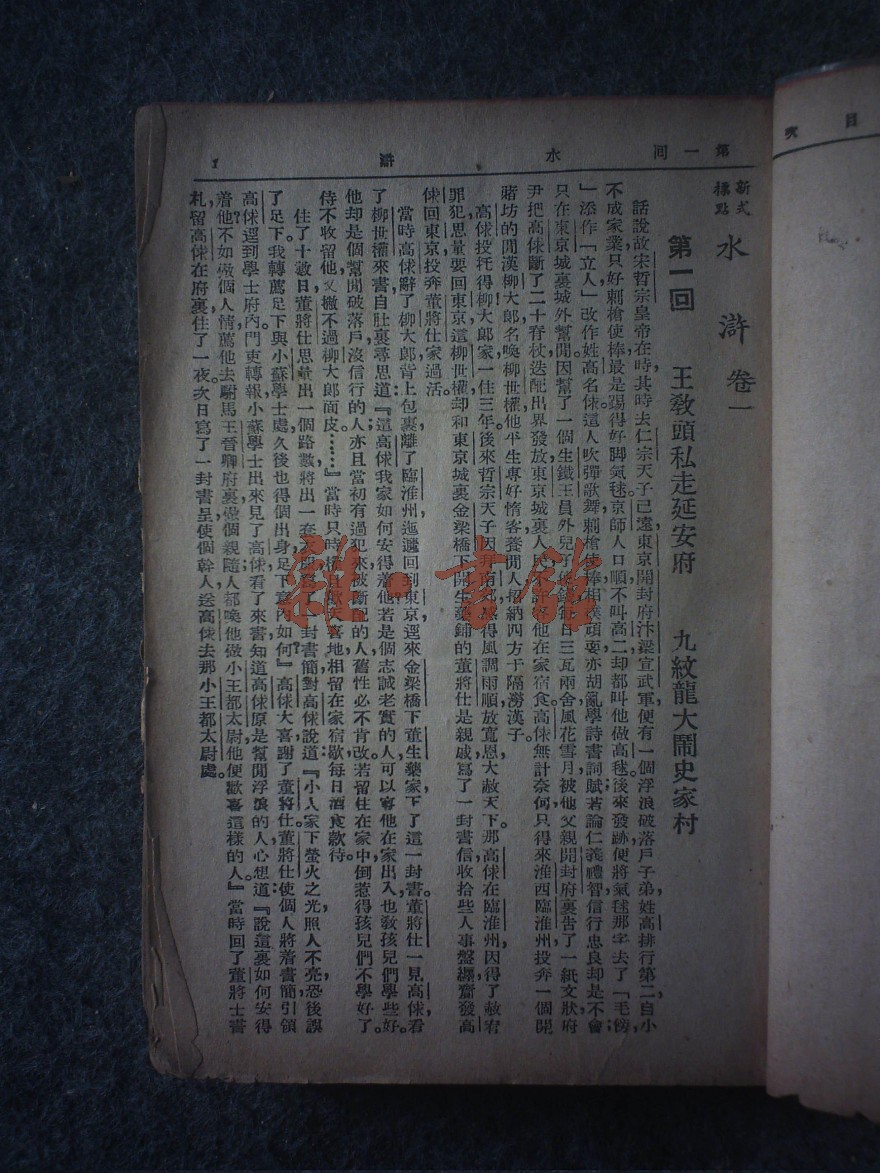 目次
第一回 水滸 1
新式標點 水滸 卷一
第一回 王教頭私走延安府 九紋龍大鬧史家村
話說故宋哲宗皇帝在時其時去仁宗天子已遠東京開封府汴梁宣武軍便有一個浮浪破落戶子弟姓高排行第二自小
不成家業只好刺槍使棒最是踢得好脚氣毬京師人口順不叫高二却都叫他做高毬後來發跡便將氣毬那字去了「毛傍
」添作「立人」改作姓高名俅這人吹彈歌舞刺槍使棒相撲頑耍亦胡亂學詩書詞賦若論仁義禮智信行忠良却是不會
只在東京城裏城外幫閒因幫了一個生鐵王員外兒子使錢每日三瓦兩舍風花雪月被他父親開封府裏告了一紙文狀府
尹把高俅斷了二十脊杖迭配出界發放東京城裏人民不許容他在家宿食高俅無計奈何只得來淮西臨淮州投奔一個開
賭坊的閒漢柳大郎名喚柳世權他平生專好惜客養閒人招納四方干隔澇漢子。
高俅投托得柳大郎家一住三年後來哲宗天子因拜南郊感得風調雨順放寬恩大赦天下那高俅在臨淮州因得了赦宥
罪犯思量要回東京這柳世權却和東京城裏金梁橋下開生藥鋪的董將仕是親戚寫了一封書信收拾些人事盤纏齎發高
俅回東京投奔董將仕家過活。
當時高俅辭了柳大郎背上包裹離了臨淮州迤邐回到東京逕來金梁橋下董生藥家下了這一封書。董將仕一見高俅看
了柳世權來書自肚裏尋思道『這高俅我家如何安得着他若是個志誠老實的人可以容他在家出入也教孩兒們學些好。
他却是個幫閒破落戶沒信行的人亦且當初有過犯來被斷配的人舊性必不肯改若留住在家中倒惹得孩兒們不學好了。
待不收留他又撇不過柳大郎面皮……』當時只得權且歡天喜地相留在家宿歇每日酒食款待。
住了十數日董將仕思量出一個路數將出一套衣服寫了一封書簡對高俅說道『小人家下螢火之光照人不亮恐後誤
了足下。我轉薦足下與小蘇學士處久後也得個出身足下意內如何』高俅大喜謝了董將仕董將仕使個人將着書簡引領
高俅逕到學士府內門吏轉報小蘇學士出來見了高俅看了來書知道高俅原是幫閒浮浪的人心想道『說這裏如何安得
着他不如做個人情薦他去駙馬王晉卿府裏做個親隨人都喚他做小王都太尉他便歡喜這樣的人。』當時回了董將士書
札留高俅在府裏住了一夜。次日寫了一封書呈使個幹人送高俅去那小王都太尉處。
雜·書館